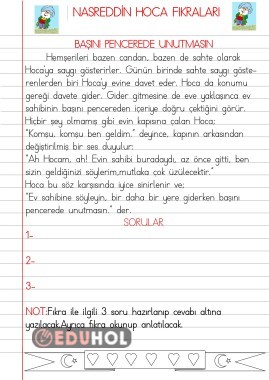 NASREDDİN HOCA FIKRALARI
BAŞINI PENCEREDE UNUTMASIN
Hemşerileri bazen candan, bazen de sahte olarak
Hoca'ya saygı gösterirler. Günün birinde sahte saygı göste-
renlerden biri Hoca'yı evine davet eder. Hoca da konumu
gereği davete gider. Gider gitmesine de eve yaklaşınca ev
sahibinin başını pencereden içeriye doğru çektiğini görür.
Hiçbir şey olmamış gibi evin kapısına çalan Hoca;
"Komşu, komşu ben geldim." deyince, kapının arkasından
değiştirilmiş bir ses duyulur:
"Ah Hocam, ah! Evin sahibi buradaydı, az önce gitti, ben
sizin geldiğinizi söylerim,mutlaka çok üzülecektir."
Hoca bu söz karşısında iyice sinirlenir ve;
"Ev sahibine söyleyin, bir daha bir yere giderken başını
pencerede unutmasın." der.
SORULAR
1-
2-
3-
NOT:Fıkra ile ilgili 3 soru hazırlanıp cevabı altına
yazılacak.Ayrıca fıkra okunup anlatılacak.
EDUHOL